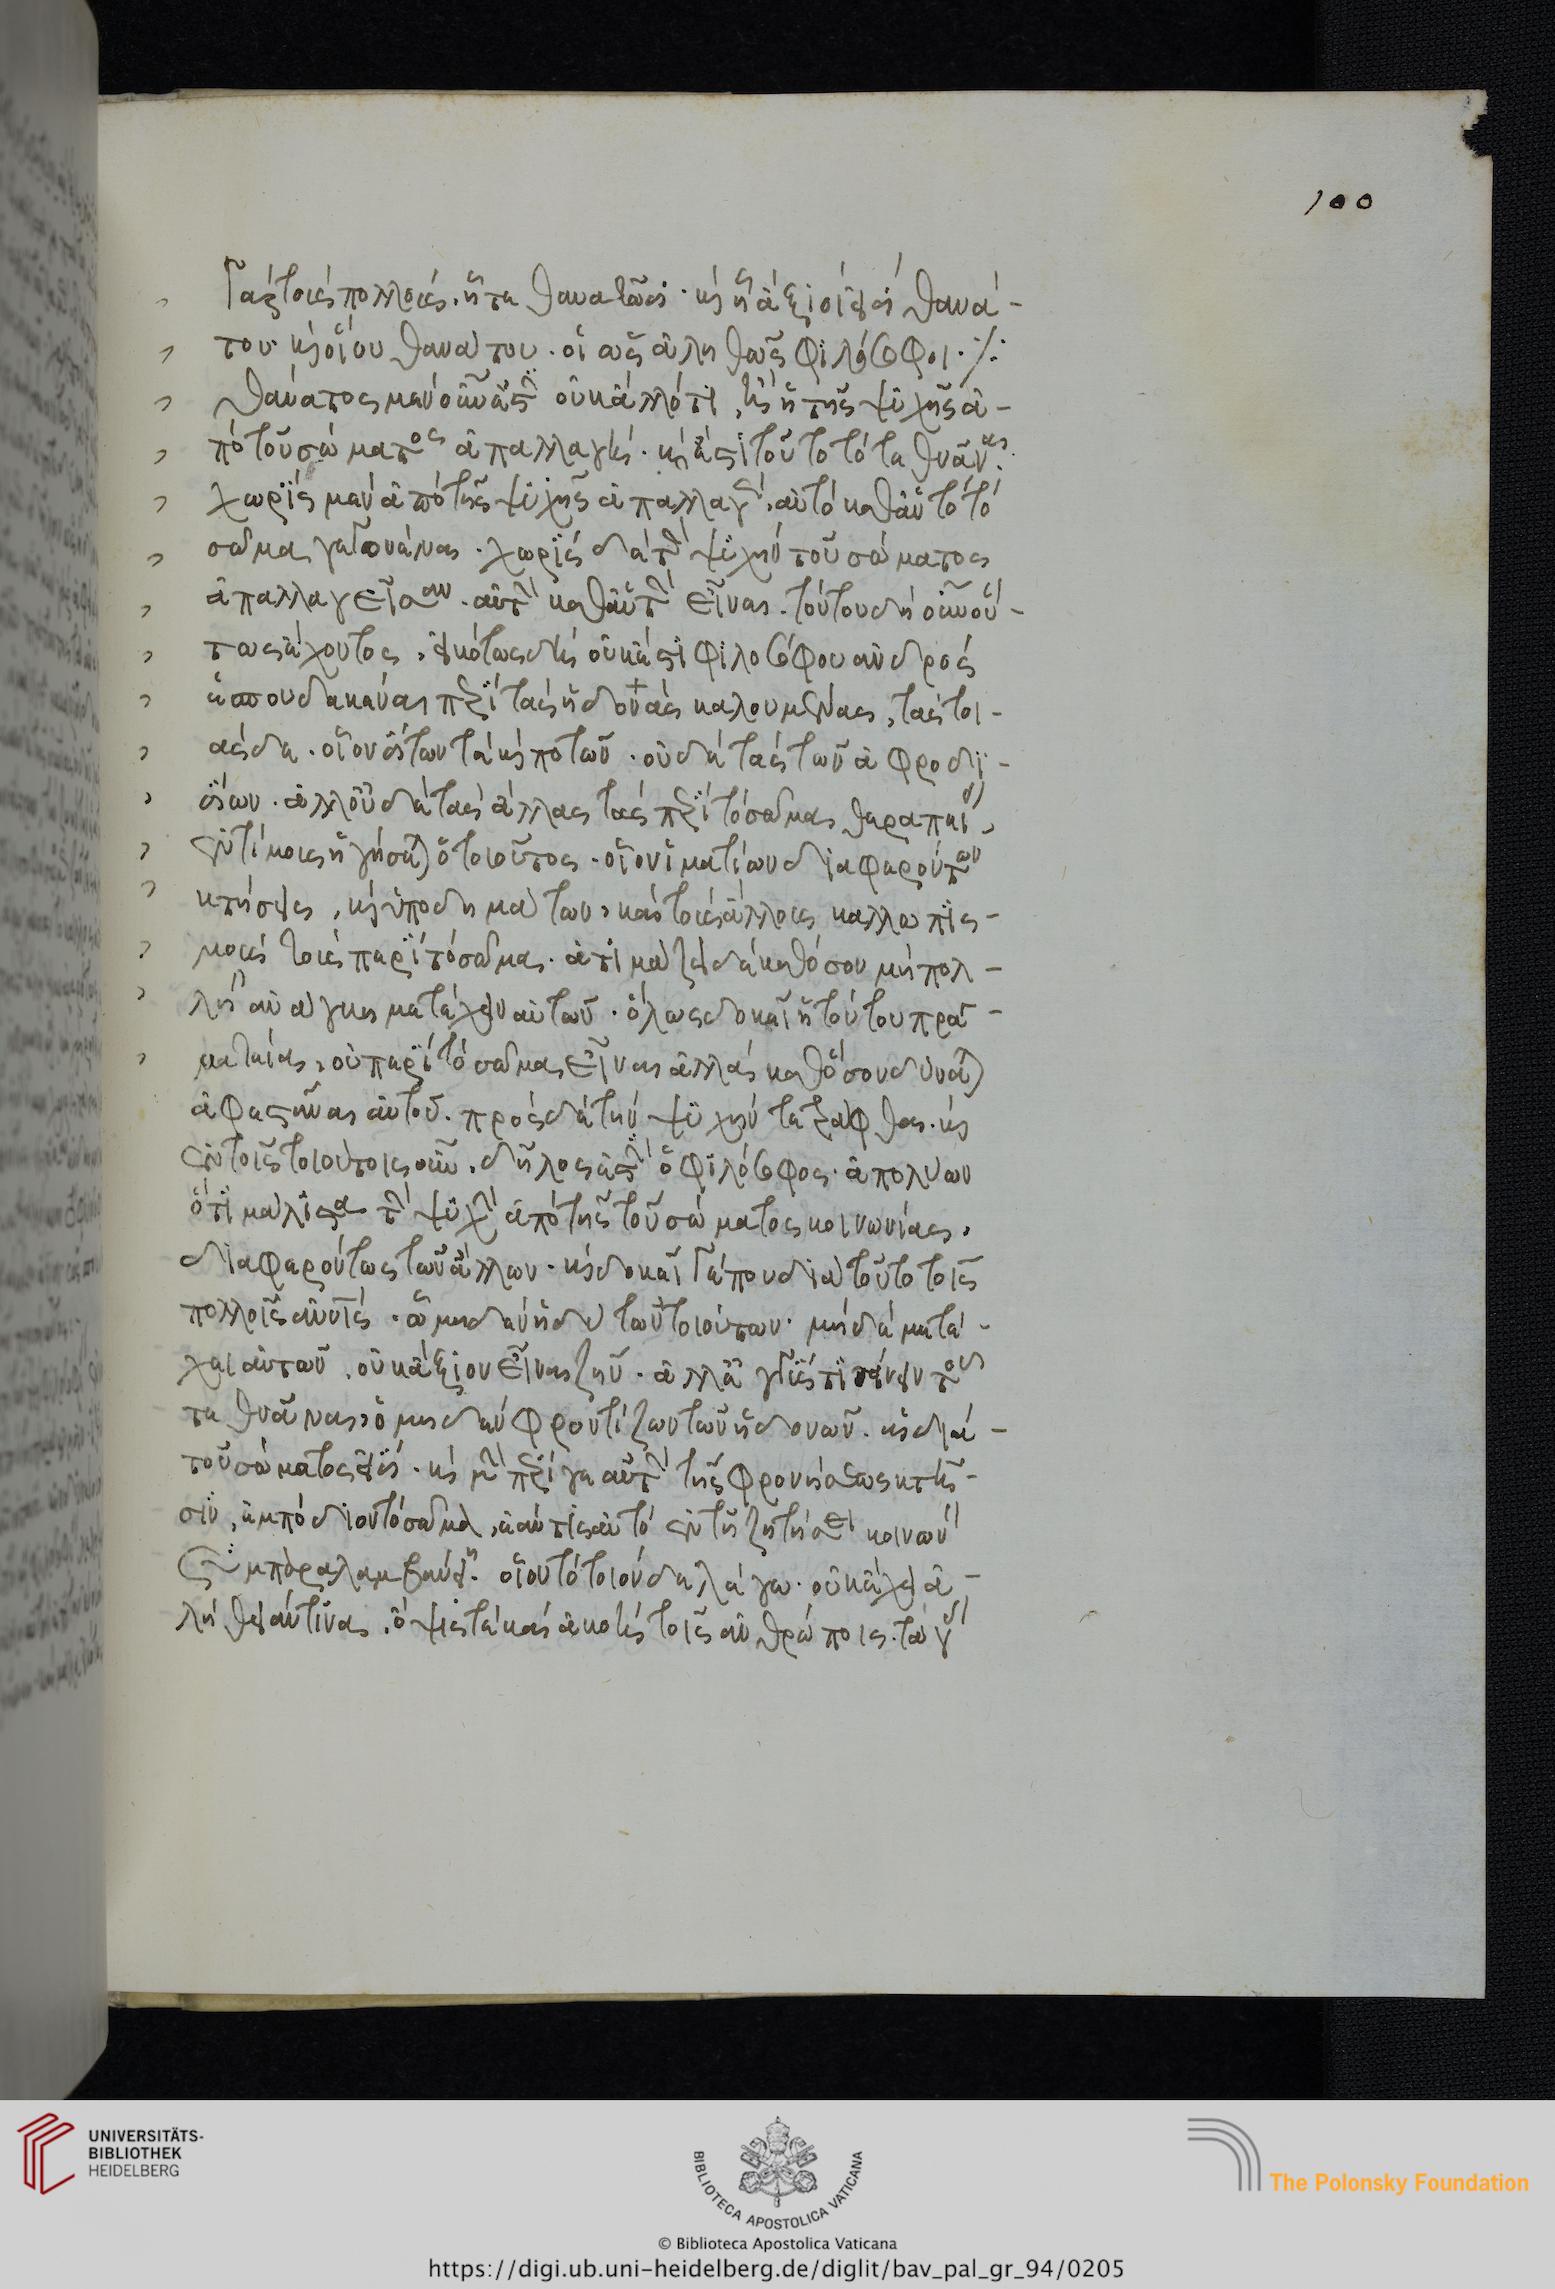 100
γὰρ τοὺς πολλοὺς, ᾗτε θανατῶσι· καὶ ᾗ ἄξιοί εἰσι θανά-
του· καὶ οἵου θανάτου· οἱ ὡς ἀληθῶς φιλόσοφοι·
θάνατος μὲν οὖν ἐστὶν οὐκ ἄλλό τι, ἢ ἡ τῆς ψυχῆς ἀ-
πὸ τοῦ σώματος ἀπαλλαγή· καὶ ἔστι τοῦτο τὸ τεθνᾶναι·
χωρὶς μὲν ἀπὸ τῆς ψυχῆς ἀπαλλαγὲν, αὐτὸ καθ' αὑτὸ τὸ
σῶμα γεγονέναι· χωρὶς δὲ τὴν ψυχὴν τοῦ σώματος
ἀπαλλαγεῖσαν· αὐτὴν καθ' αὑτὴν εἶναι· τούτου δὴ οὖν οὕ-
τως ἔχοντος, εἰκότως δὴ οὐκ ἔστι φιλοσόφου ἀνδρὸς
ἐσπουδακέναι περὶ τὰς ἡδονὰς καλουμένας, τὰς τοι-
άσδε· οἷον σίτων τὲ καὶ ποτῶν· οὐδὲ τὰς τῶν ἀφροδι-
σίων· ἀλλ' οὐδὲ τὰς ἄλλας τὰς περὶ τὸ σῶμα θεραπείας,
ἐντίμους ἡγήσεται ὁ τοιοῦτος· οἷον ἱματίων διαφερόντων
κτήσεις, καὶ ὑποδημάτων, καὶ τοὺς ἄλλους καλλωπισ-
μοὺς τοὺς περὶ τὸ σῶμα· ἀτιμάζει δὲ καθόσον μὴ πολ-
λὴ ἀνάγκη μετέχειν αὐτῶν· ὅλως δοκεῖ ἡ τούτου πραγ-
ματεία, οὐ περὶ τὸ σῶμα εἶναι ἀλλὰ καθόσον δύναται
ἀφεστάναι αὐτοῦ· πρὸς δὲ τὴν ψυχὴν τετράφθαι· καὶ
ἐν τοῖς τοιούτοις οὖν, δῆλος ἐστὶν ὁ φιλόσοφος· ἀπολύων
ὅτι μάλιστα τὴν ψυχὴν ἀπὸ τῆς τοῦ σώματος κοινωνίας,
διαφερόντως τῶν ἄλλων· καὶ δοκεῖ γέ που διὰ τοῦτο τοῖς
πολλοῖς ἀνθρώποις· ᾧ μηδὲν ἡδὺ τῶν τοιούτων· μηδὲ μετέ-
χει αὐτῶν, οὐκ ἄξιον εἶναι ζῆν· ἀλλ' ἐγγύς τι τείνειν τοῦ
τεθνᾶναι, ὁ μηδὲν φροντίζων τῶν ἡδονῶν· αἳ διὰ
τοῦ σώματος εἰσί· καὶ μὴν περί γε αὐτὴν τῆς φρονήσεως κτῆ-
σιν, ἐμπόδιον τὸ σῶμα, ἐάν τις αὐτὸ ἐν τῇ ζητήσει κοινωνὸν
συμπαραλαμβάνῃ· οἷον τὸ τοιόνδε λέγω· οὐκ ἔχει ἀ-
λήθειάν τινα, ὄψις τὲ καὶ ἀκοὴ τοῖς ἀνθρώποις· τά γε
UNIVERSITÄTS-
BIBLIOTHEK
HEIDELBERG
BIBLIOTECA APOSTOLICA VATICANA
The Polonsky Foundation
© Biblioteca Apostolica Vaticana
https://digi.ub.uni-heidelberg.de/diglit/bav_pal_gr_94/0205